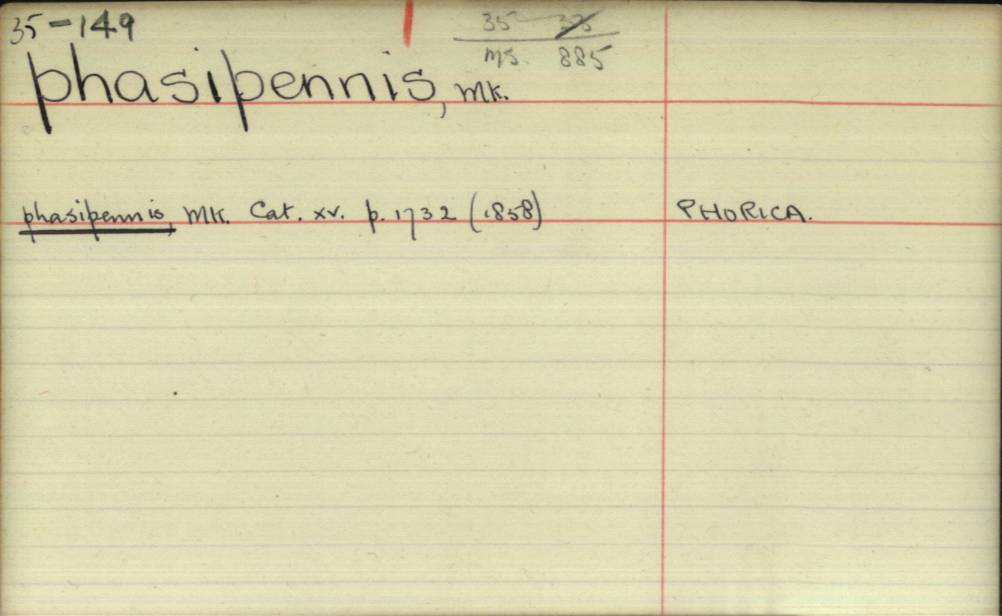 35-149
35
MS. 885
phasipennis, Mk.
phasipennis, Mk. Cat. xv. p. 1732 (1858) PHORICA.